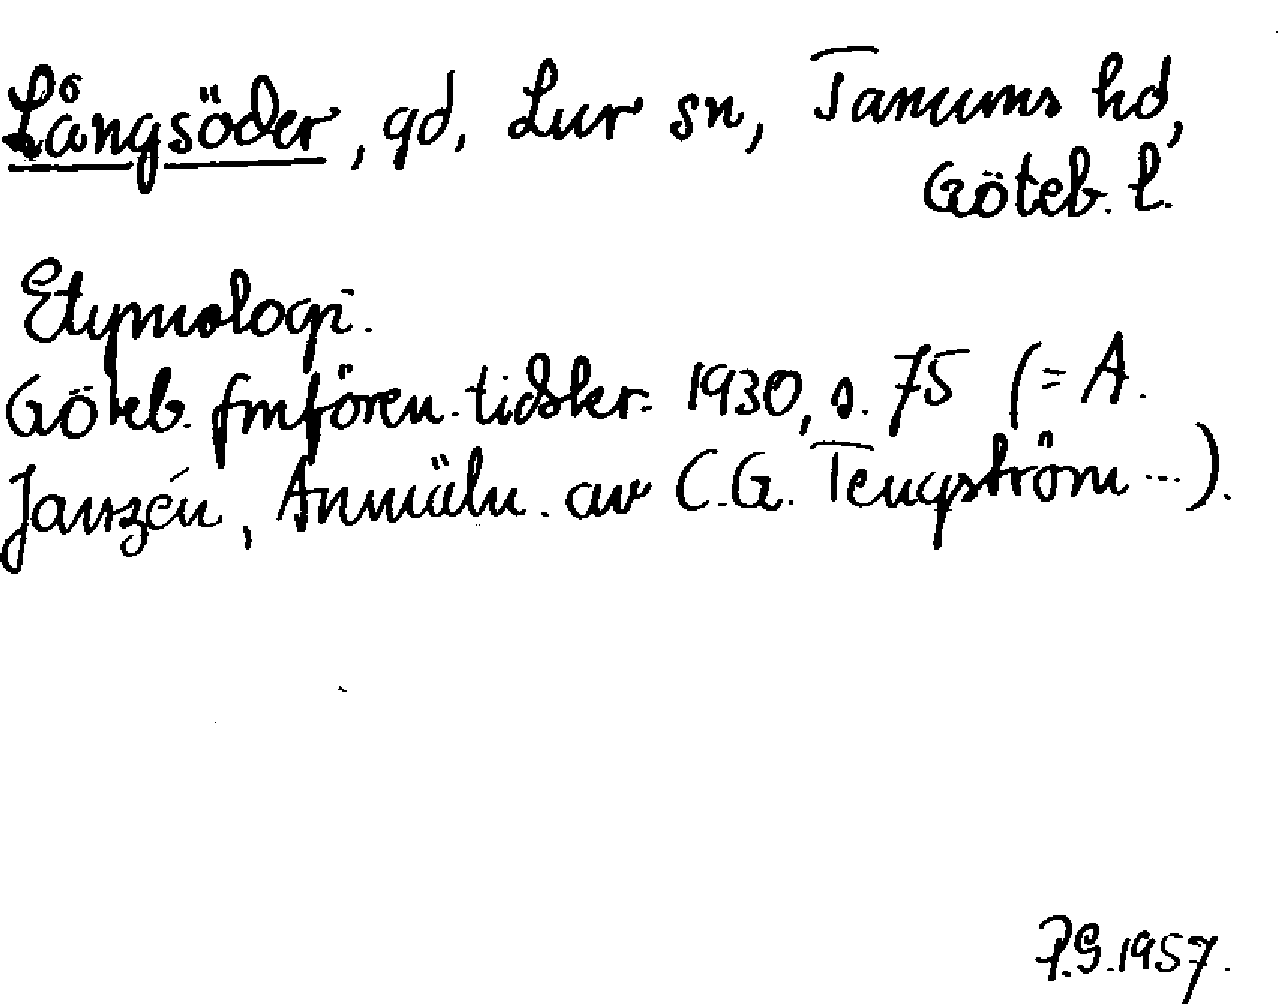 Långsöder, gd, Lur sn, Tanums hd,
Göteb. l.
Etymologi.
Göteb. fmfören. tidskr. 1930, s. 75 (= A.
Janzén, Anmäln. av C.G. Tengström ...).
P.G. 1957.